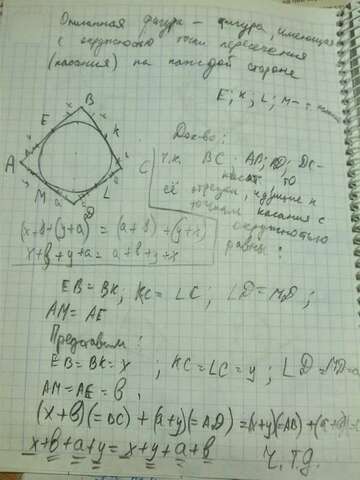 Описанная фигура - фигура, имеющая
с окружностью точки пересечения
(касания) на каждой стороне
E; K; L; M -
B
E
K
A
C
M
L
a
D
Док-во:
т.к. BC; AB; AD; DC -
касат. то
её отрезки, идущие к
точкам касания с
окружностью
равны:
(x+b)+(y+a) = (a+b)+(y+x)
x+b+y+a = a+b+y+x
EB = BK; KC = LC; LD = MD;
AM = AE
Представим:
EB = BK = x; KC = LC = y; LD = MD = a
AM = AE = b.
(x+b)(=BC) + (a+y)(=AD) = (x+y)(=AB) + (a+b)
x+b+a+y = x+y+a+b
Ч.Т.Д.